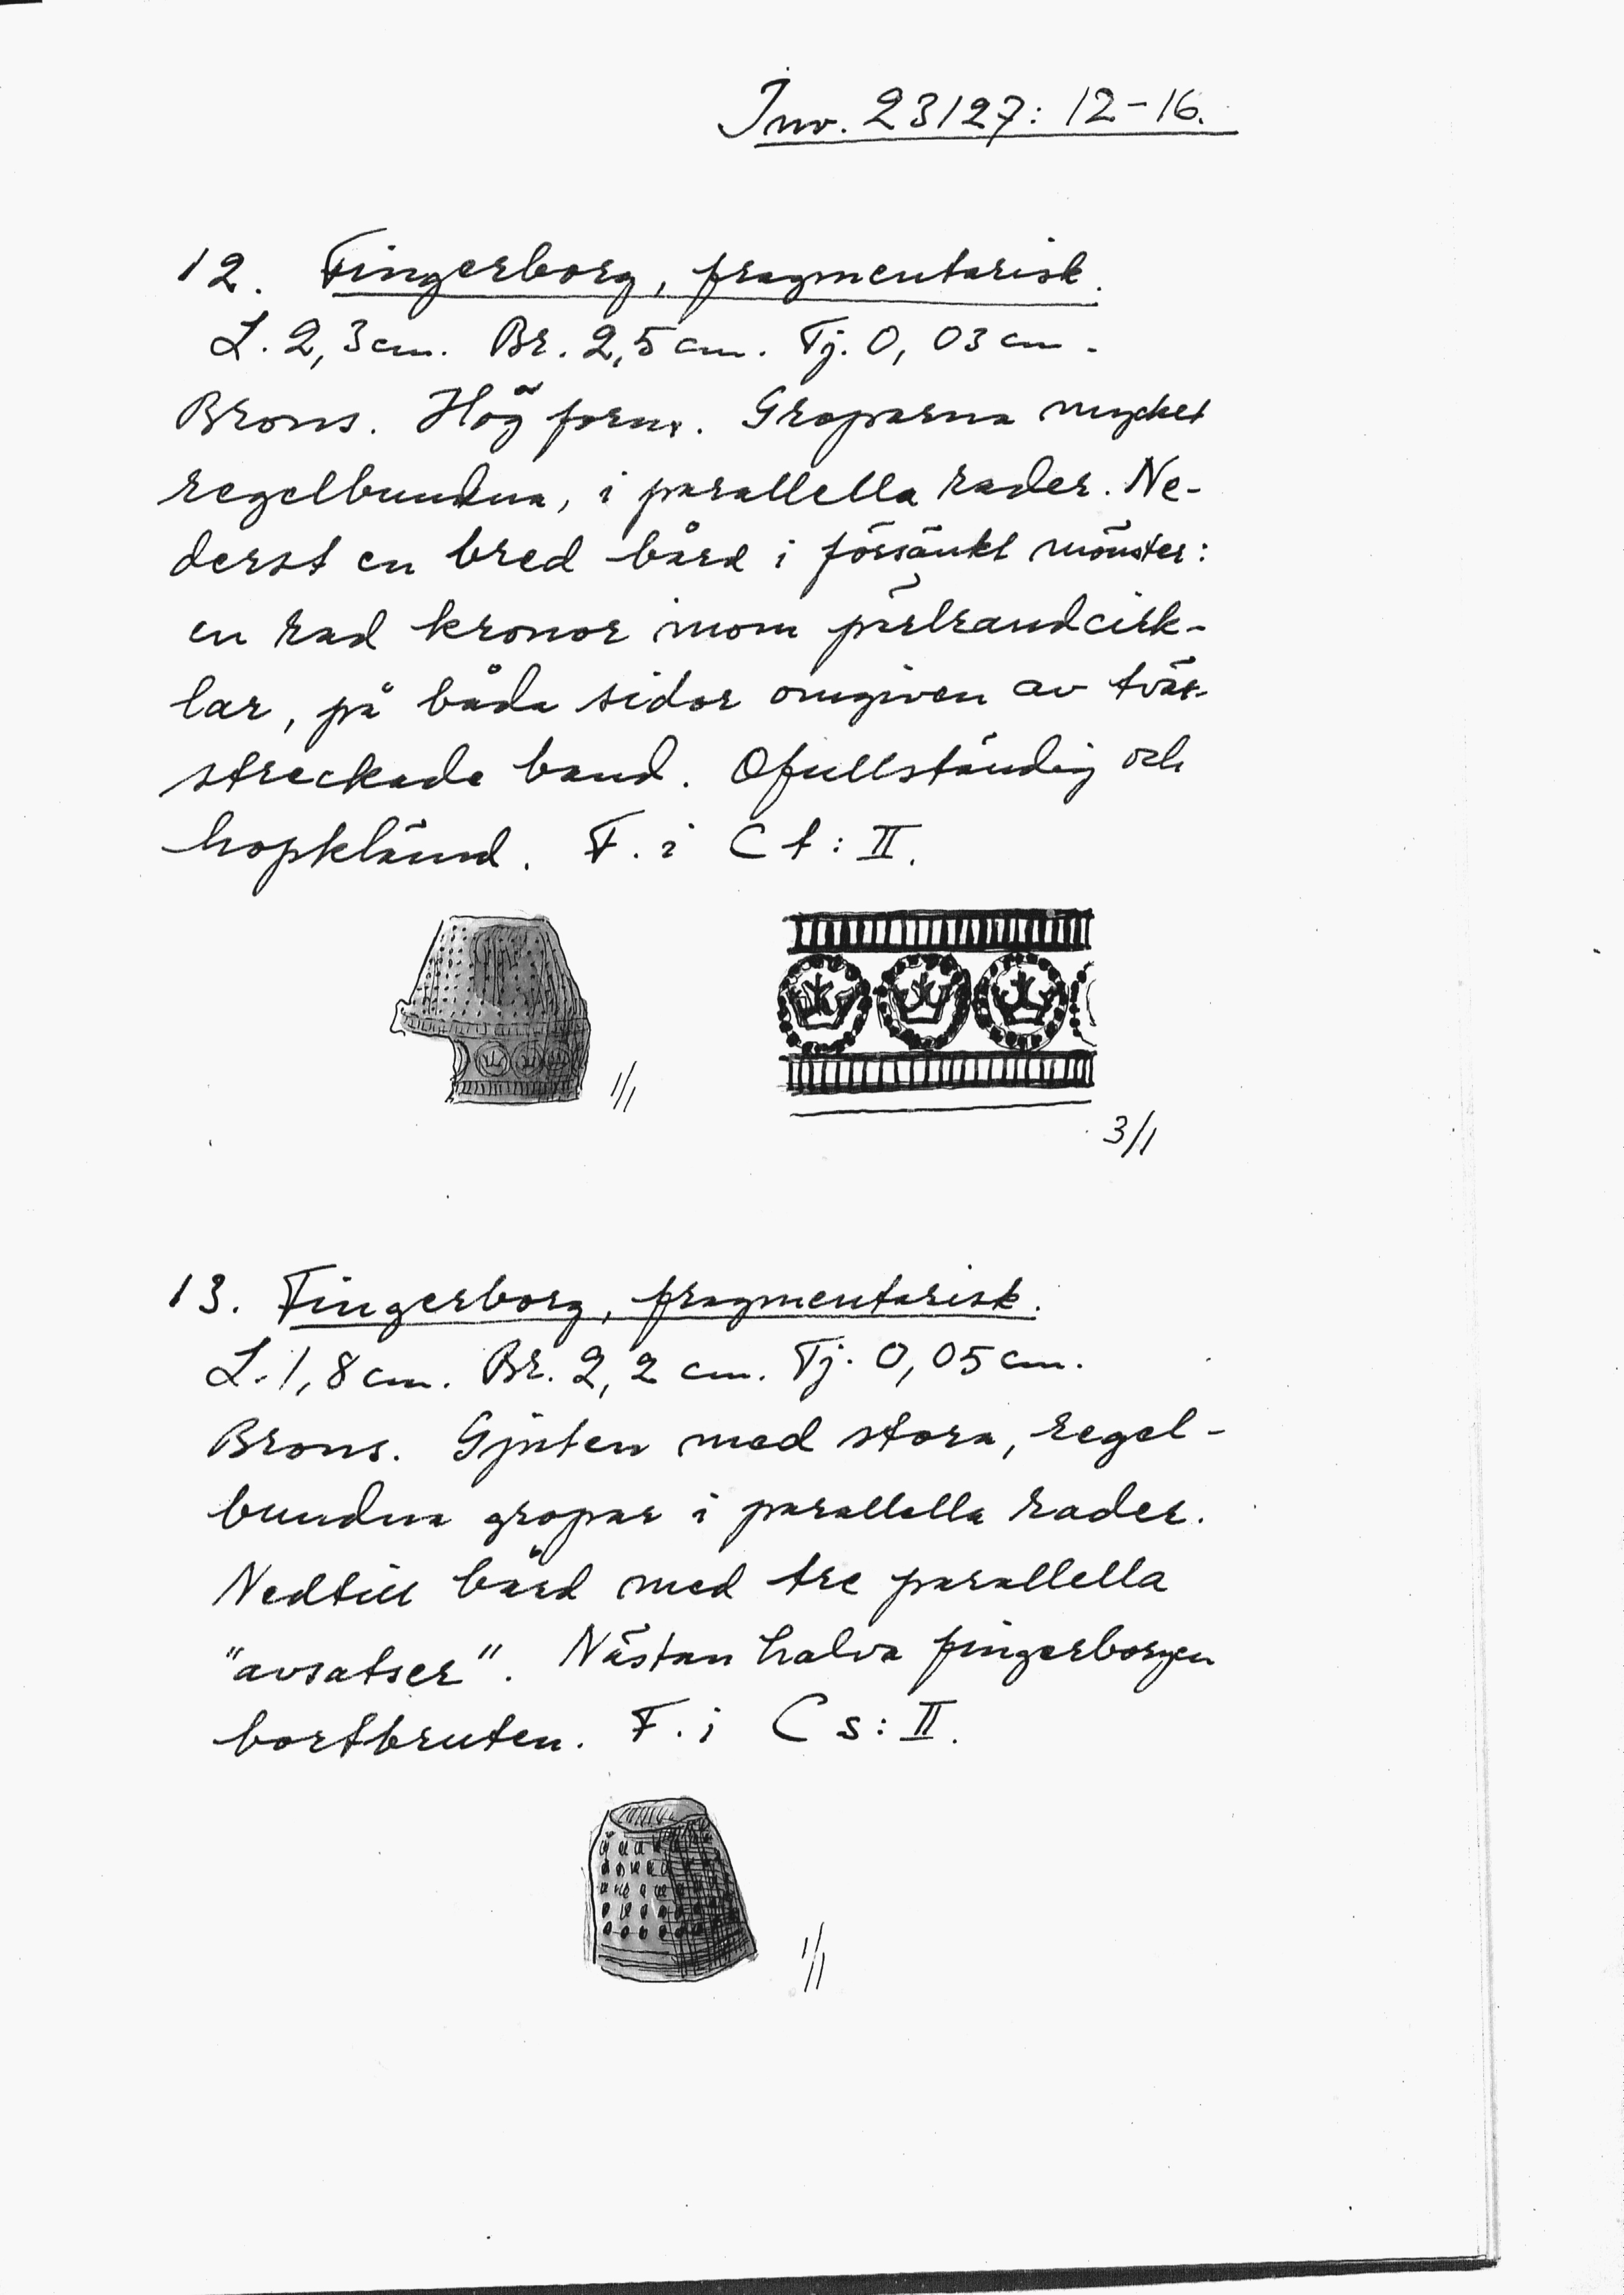 Inv. 23127: 12-16.
12. Fingerborg, fragmentarisk.
L. 2,3 cm. Br. 2,5 cm. Tj. 0,03 cm.
Brons. Hög form. Groparna mycket
regelbundna, i parallella rader. Ne-
derst en bred bård i försänkt mönster:
en rad kronor inom pärlrandcirk-
lar, på båda sidor omgiven av tvär-
streckade band. Ofullständig och
hopklämd. F. i Ct: II.
1/1
3/1
13. Fingerborg, fragmentarisk.
L. 1,8 cm. Br. 2,2 cm. Tj. 0,05 cm.
Brons. Gjuten med stora, regel-
bundna gropar i parallella rader.
Nedtill bård med tre parallella
"avsatser". Nästan halva fingerborgen
bortbruten. F. i Cs: II.
1/1